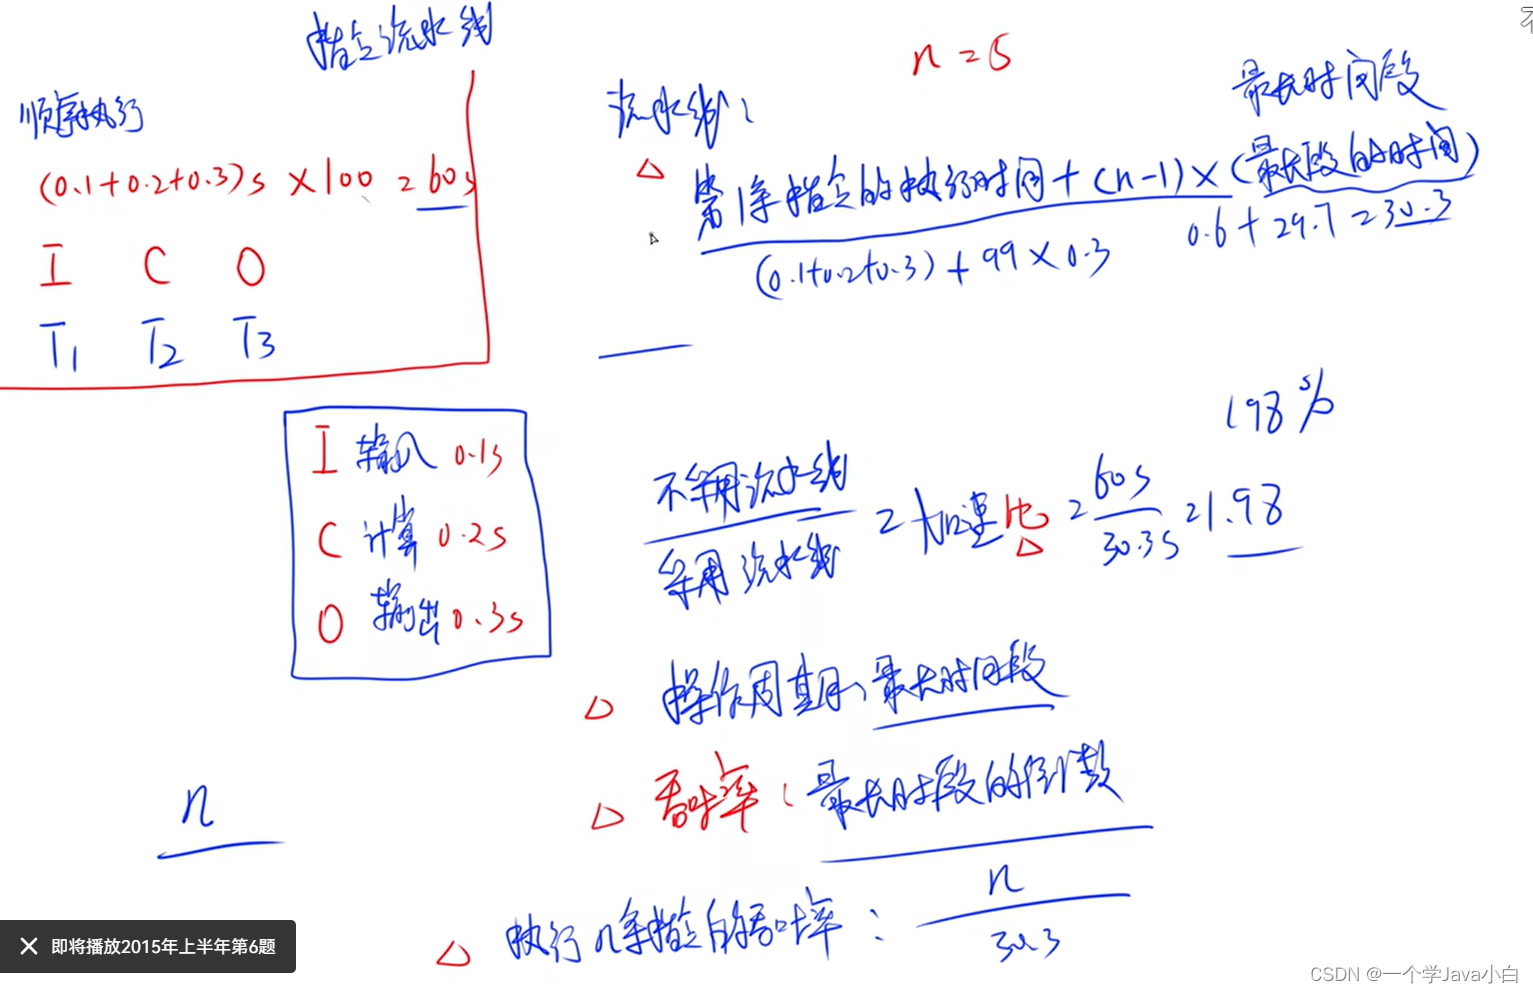 指令流水线
n = 5
顺序执行
(0.1+0.2+0.3)s ×100 = 60s
I C O
T1 T2 T3
流水线:
最长时间段
△ 第1条指令的执行时间 + (n-1) × (最长段的时间)
(0.1+0.2+0.3) + 99 × 0.3
0.6 + 29.7 = 30.3
I 输入 0.1s
C 计算 0.2s
O 输出 0.3s
198%
不采用流水线
采用流水线
= 加速比 = 60s
30.3s
=1.98
△
△ 操作周期: 最长时间段
△ 吞吐率: 最长时段的倒数
n
△ 执行n条指令的吞吐率:
n
30.3
即将播放2015年上半年第6题
CSDN @一个学Java小白